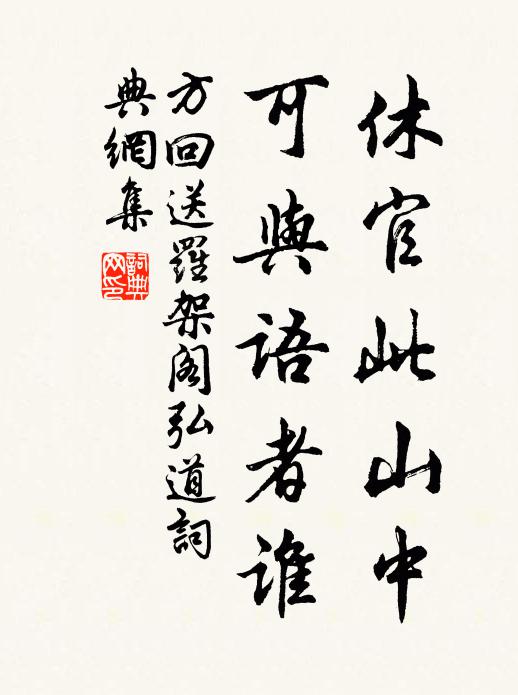 休官此山中
可與語者誰
方回送羅架閣弘道詞
典網集
詞典網印